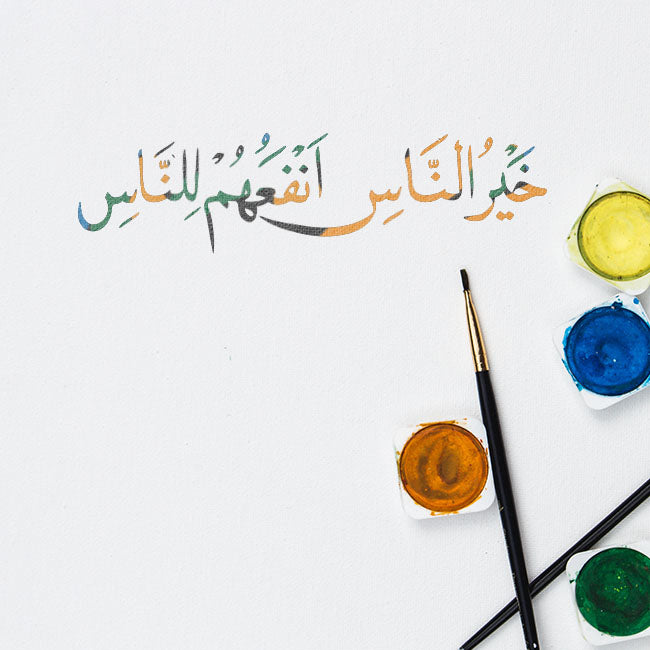 خَيْرُ النَّاسِ اَنْفَعُهُمْ لِلنَّاسِ